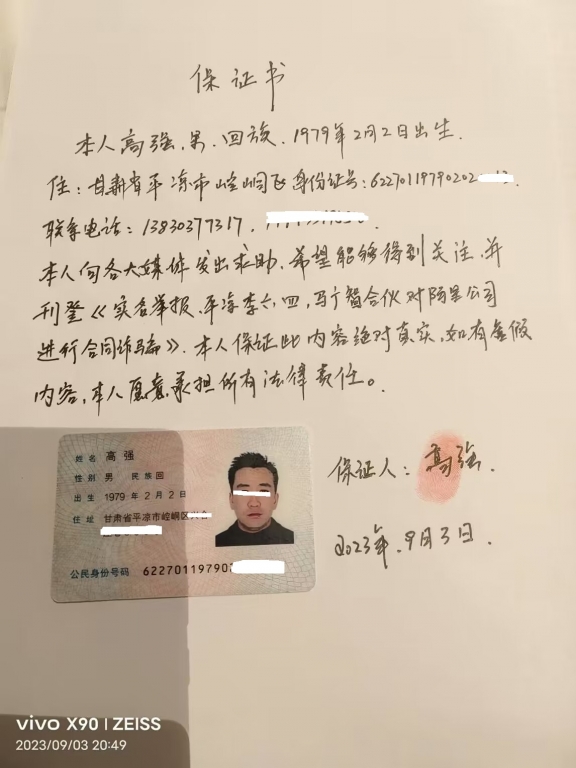 保证书
本人高强.男.回族.1979年2月2日出生.
住:甘肃省平凉市崆峒区身份证号:62270119790202
联系电话:13830377317.
本人向各大媒体发出求助.希望能够得到关注.并
刊登《实名举报.平凉李六.四,马广智合伙对陌生公司
进行合同诈骗》.本人保证此内容绝对真实,如有虚假
内容,本人愿意承担所有法律责任。
保证人:高强.
2023年.9月3日.
姓名 高强
性别 男 民族 回
出生 1979年2月2日
住址 甘肃省平凉市崆峒区兴合
公民身份号码 622701197902
vivo X90 | ZEISS
2023/09/03 20:49